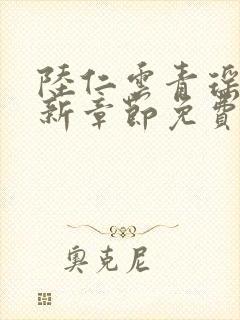 陸仁雲青瑶
新章節免費
奧克尼